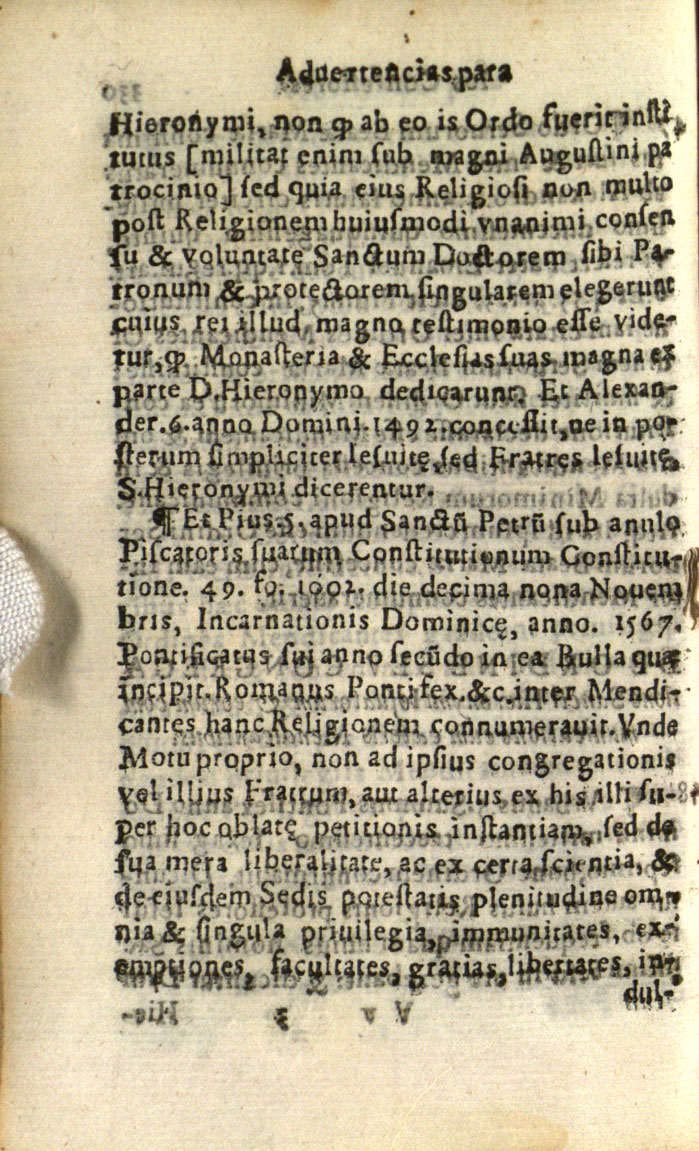 Aduertencias para
Hieronymi, non ꝙ ab eo is Ordo fuerit insti-
tutus [militat enim sub magni Augustini pa
trocinio] sed quia eius Religiosi non multo
post Religionem huiusmodi vnanimi consen
su & voluntate Sanctum Doctorem sibi Pa-
tronum & protectorem singularem elegerunt
cuius rei illud magno testimonio esse vide-
tur, ꝙ Monasteria & Ecclesias suas magna ex
parte D.Hieronymo dedicarunt. Et Alexan-
der.6.anno Domini.1492.concessit,ne in pos-
sterum simpliciter Iesuitę,sed Fratres Iesuitę
S.Hieronymi dicerentur.
¶ Et Pius.5.apud Sanctũ Petrũ sub anulo
Piscatoris suarum Constitutionum Constitu-
tione. 49. fo. 1002. die decima nona Nouem
bris, Incarnationis Dominicę, anno. 1567.
Pontificatus sui anno secũdo in ea Bulla quæ
incipit.Romanus Pontifex.&c.inter Mendi-
cantes hanc Religionem connumerauit.Vnde
Motu proprio, non ad ipsius congregationis
vel illius Fratrum, aut alterius ex his illi su-
per hoc oblatę petitionis instantiam, sed de
sua mera liberalitate, ac ex certa scientia, &
de eiusdem Sedis potestatis plenitudine om-
nia & singula priuilegia, immunitates, ex-
emptiones, facultates, gratias, libertates, in-
dul-